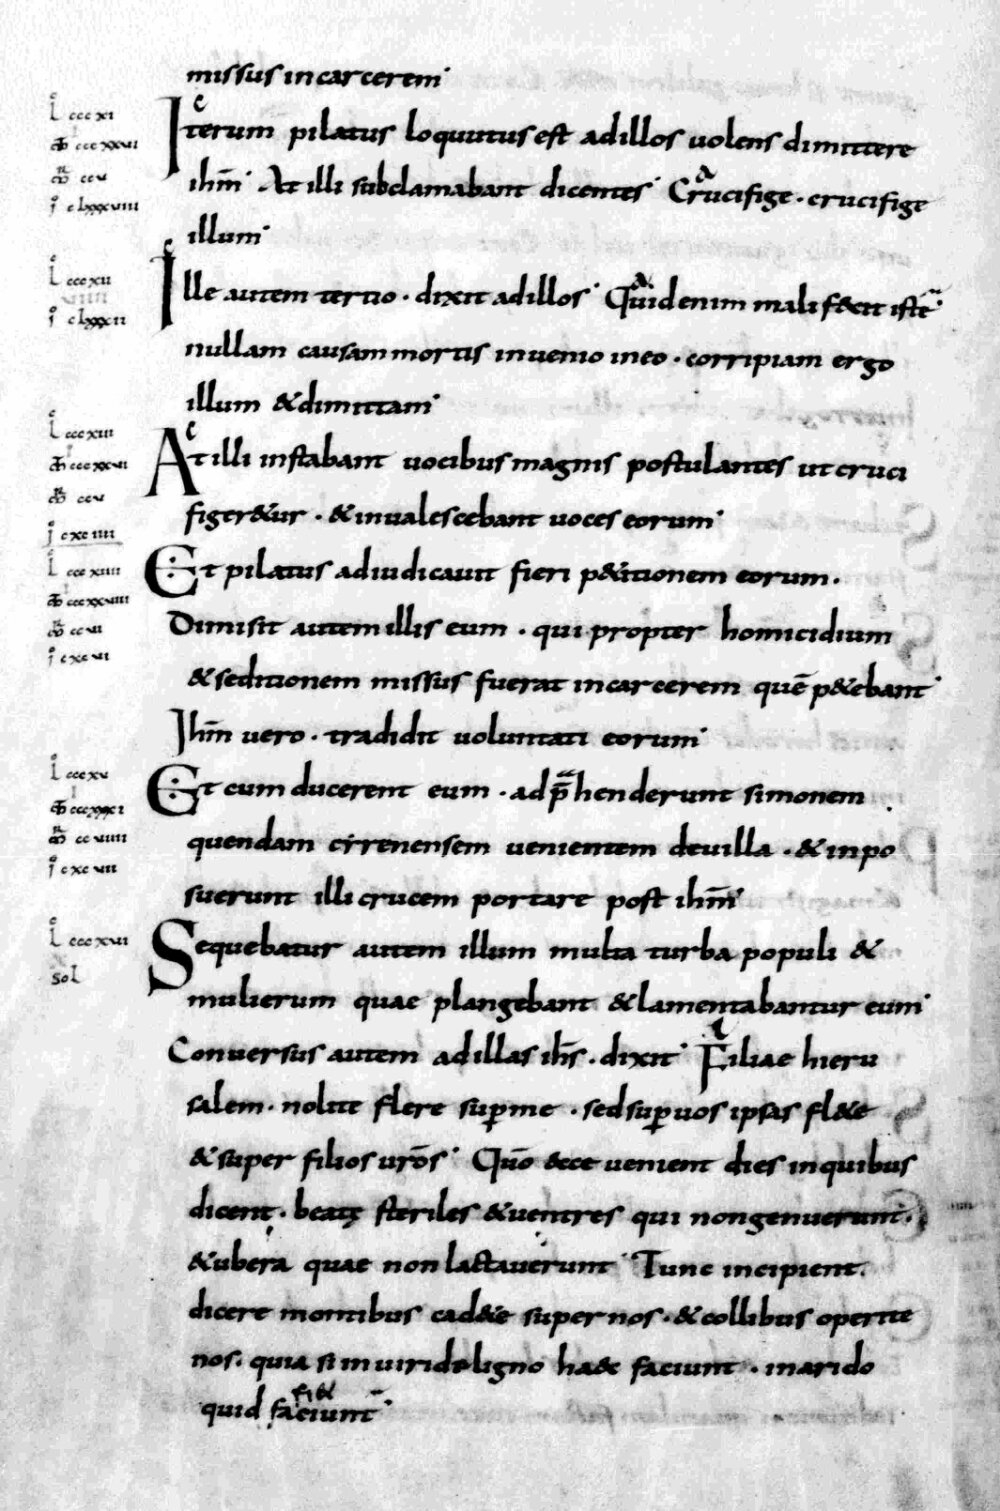 missus in carcerem
L cccxi
Iterum pilatus loquutus est ad illos uolens dimittere
ihm̅ At illi subclamabant dicentes Crucifige · crucifige
illum
L cccxii
Ille autem tertio · dixit ad illos Quid enim mali fecit iste
nullam causam mortis inuenio in eo · corripiam ergo
illum & dimittam
L cccxiii
At illi instabant uocibus magnis postulantes ut cruci
figer&ur · & inualescebant uoces eorum
L cccxiiii
Et pilatus adiudicauit fieri p&itionem eorum ·
Dimisit autem illis eum · qui propter homicidium
& seditionem missus fuerat in carcerem quē p&ebant
Ihm̅ uero · tradidit uoluntati eorum
L cccxv
Et cum ducerent eum · adp̄henderunt simonem
quendam cirenensem uenientem de uilla · & inpo
suerunt illi crucem portare post ihm̅
L cccxvi
sol
Sequebatur autem illum multa turba populi &
mulierum quae plangebant & lamentabantur eum
Conuersus autem ad illas ihs̅ · dixit Filiae hieru
salem · nolite flere sup̱ me · sed sup̱ uos ipsas fl&e
& super filios uro̅s Quō ecce uenient dies in quibus
dicent · beatę steriles & uentres qui non genuerunt ·
& ubera quae non lactauerunt Tunc incipient
dicere montibus cad&e super nos · & collibus operite
nos · quia si in uiride ligno haec faciunt · in arido
fi&
quid faciunt